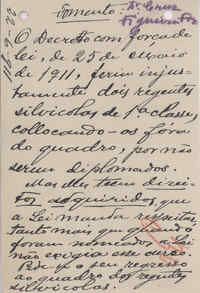 Fomento.
Dr. Cruz
Figueiredo
O Decreto com força de
lei, de 25 de maio
de 1911, feriu injus-
tamente dois regentes
silvicolas de 1ª classe,
collocando-os fora
do quadro, por não
serem diplomados.
Mas elles teem direi-
tos adquiridos, que
a Lei manda respeitar,
tanto mais que quando
foram nomeados a Lei
não exigia esse
Pede-se o seu regresso
ao quadro dos regentes
silvicolas.